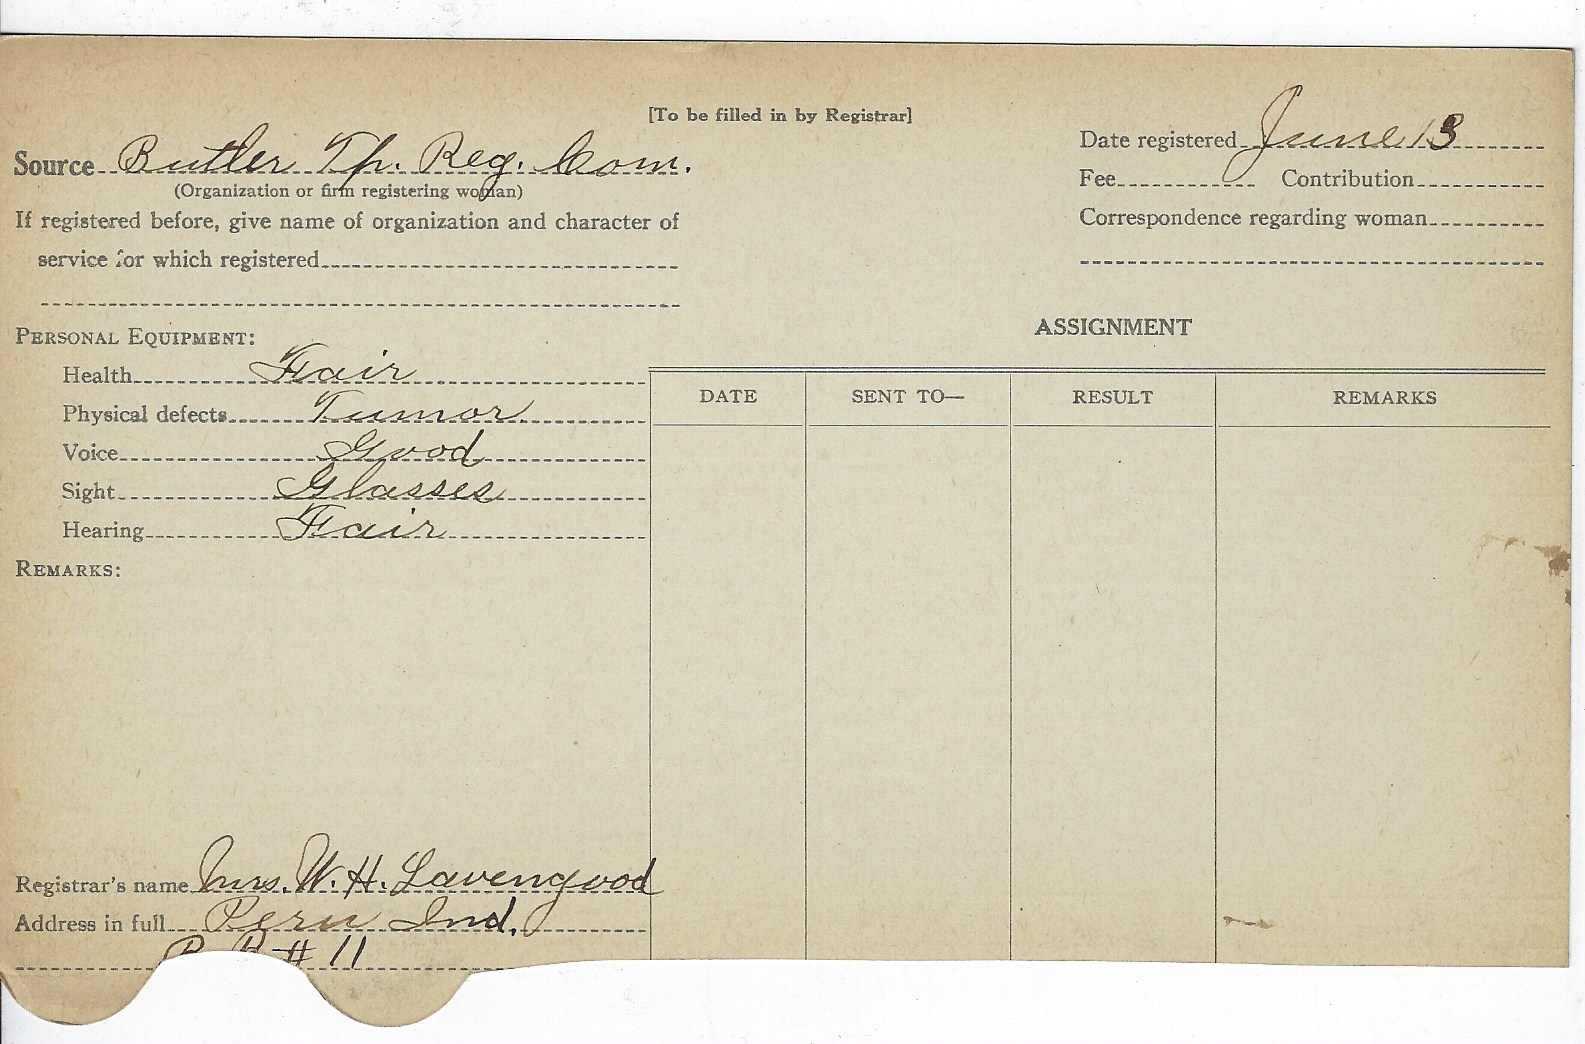 [To be filled in by Registrar]
Source Butler Tp. Reg. Com.
(Organization or firm registering woman)
If registered before, give name of organization and character of
service for which registered
Date registered June 13
Fee Contribution
Correspondence regarding woman
PERSONAL EQUIPMENT:
Health Fair
Physical defects Tumor
Voice Good
Sight Glasses
Hearing Fair
REMARKS:
ASSIGNMENT
DATE SENT TO— RESULT REMARKS
Registrar's name Mrs. W. H. Lavengood
Address in full Peru Ind.
R R # 11